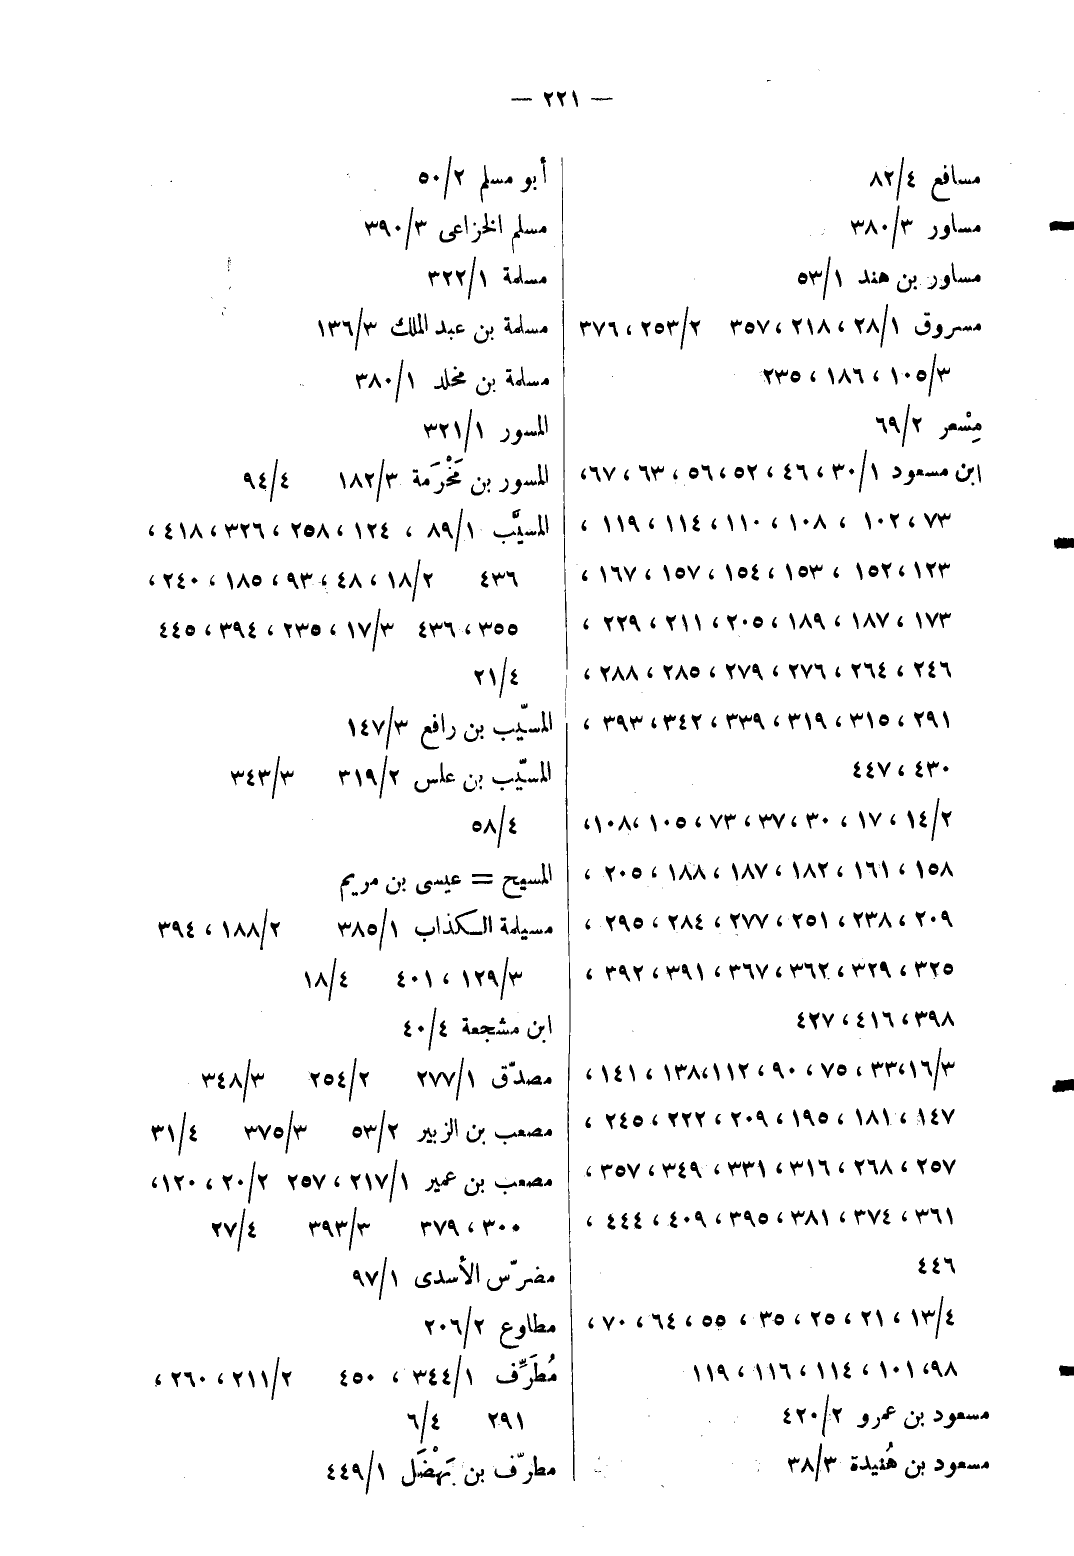 — ٢٢١ —
مسافع ٨٢/٤
مساور ٣٨٠/٣
مساور بن هند ٥٣/١
مسروق ٢٨/١ ، ٢١٨ ، ٣٥٧ ٢٥٣/٢ ، ٣٧٦
١٠٥/٣ ، ١٨٦ ، ٢٣٥
مِسْعر ٦٩/٢
ابن مسعود ٣٠/١ ، ٤٦ ، ٥٢ ، ٥٦ ، ٦٣ ، ٦٧ ،
٧٣ ، ١٠٢ ، ١٠٨ ، ١١٠ ، ١١٤ ، ١١٩ ،
١٢٣ ، ١٥٢ ، ١٥٣ ، ١٥٤ ، ١٥٧ ، ١٦٧ ،
١٧٣ ، ١٨٧ ، ١٨٩ ، ٢٠٥ ، ٢١١ ، ٢٢٩ ،
٢٤٦ ، ٢٦٤ ، ٢٧٦ ، ٢٧٩ ، ٢٨٥ ، ٢٨٨ ،
٢٩١ ، ٣١٥ ، ٣١٩ ، ٣٣٩ ، ٣٤٢ ، ٣٩٣ ،
٤٣٠ ، ٤٤٧
١٤/٢ ، ١٧ ، ٣٠ ، ٣٧ ، ٧٣ ، ١٠٥ ، ١٠٨ ،
١٥٨ ، ١٦١ ، ١٨٢ ، ١٨٧ ، ١٨٨ ، ٢٠٥ ،
٢٠٩ ، ٢٣٨ ، ٢٥١ ، ٢٧٧ ، ٢٨٤ ، ٢٩٥ ،
٣٢٥ ، ٣٢٩ ، ٣٦٢ ، ٣٦٧ ، ٣٩١ ، ٣٩٢ ،
٣٩٨ ، ٤١٦ ، ٤٢٧
١٦/٣ ، ٣٣ ، ٧٥ ، ٩٠ ، ١١٢ ، ١٣٨ ، ١٤١ ،
١٤٧ ، ١٨١ ، ١٩٥ ، ٢٠٩ ، ٢٢٢ ، ٢٤٥ ،
٢٥٧ ، ٢٦٨ ، ٣١٦ ، ٣٣١ ، ٣٤٩ ، ٣٥٧ ،
٣٦١ ، ٣٧٤ ، ٣٨١ ، ٣٩٥ ، ٤٠٩ ، ٤٤٤ ،
٤٤٦
١٣/٤ ، ٢١ ، ٢٥ ، ٣٥ ، ٥٥ ، ٦٤ ، ٧٠ ،
٩٨ ، ١٠١ ، ١١٤ ، ١١٦ ، ١١٩
مسعود بن عمرو ٤٢٠/٢
مسعود بن هُنيدة ٣٨/٣
أبو مسلم ٥٠/٢
مسلم الخزاعى ٣٩٠/٣
مسلمة ٣٢٢/١
مسلمة بن عبد الملك ١٣٦/٣
مسلمة بن مخلد ٣٨٠/١
المسور ٣٢١/١
المسور بن مَخْرَمة ١٨٢/٣ ٩٤/٤
المسيَّب ٨٩/١ ، ١٢٤ ، ٢٥٨ ، ٣٢٦ ، ٤١٨ ،
٤٣٦ ١٨/٢ ، ٤٨ ، ٩٣ ، ١٨٥ ، ٢٤٠ ،
٣٥٥ ، ٤٣٦ ١٧/٣ ، ٢٣٥ ، ٣٩٤ ، ٤٤٥
٢١/٤
المسيّب بن رافع ١٤٧/٣
المسيّب بن علس ٣١٩/٢ ٣٤٣/٣
٥٨/٤
المسيح = عيسى بن مريم
مسيلمة الكذاب ٣٨٥/١ ١٨٨/٢ ، ٣٩٤
١٢٩/٣ ، ٤٠١ ١٨/٤
ابن مشجعة ٤٠/٤
مصدّق ٢٧٧/١ ٢٥٤/٢ ٣٤٨/٣
مصعب بن الزبير ٥٣/٢ ٣٧٥/٣ ٣١/٤
مصعب بن عمير ٢١٧/١ ، ٢٥٧ ٢٠/٢ ، ١٢٠ ،
٣٠٠ ، ٣٧٩ ٣٩٣/٣ ٢٧/٤
مضرّس الأسدى ٩٧/١
مطاوع ٢٠٦/٢
مُطَرِّف ٣٤٤/١ ، ٤٥٠ ٢١١/٢ ، ٢٦٠ ،
٢٩١ ٦/٤
مطرّف بن بَهْضَل ٤٤٩/١